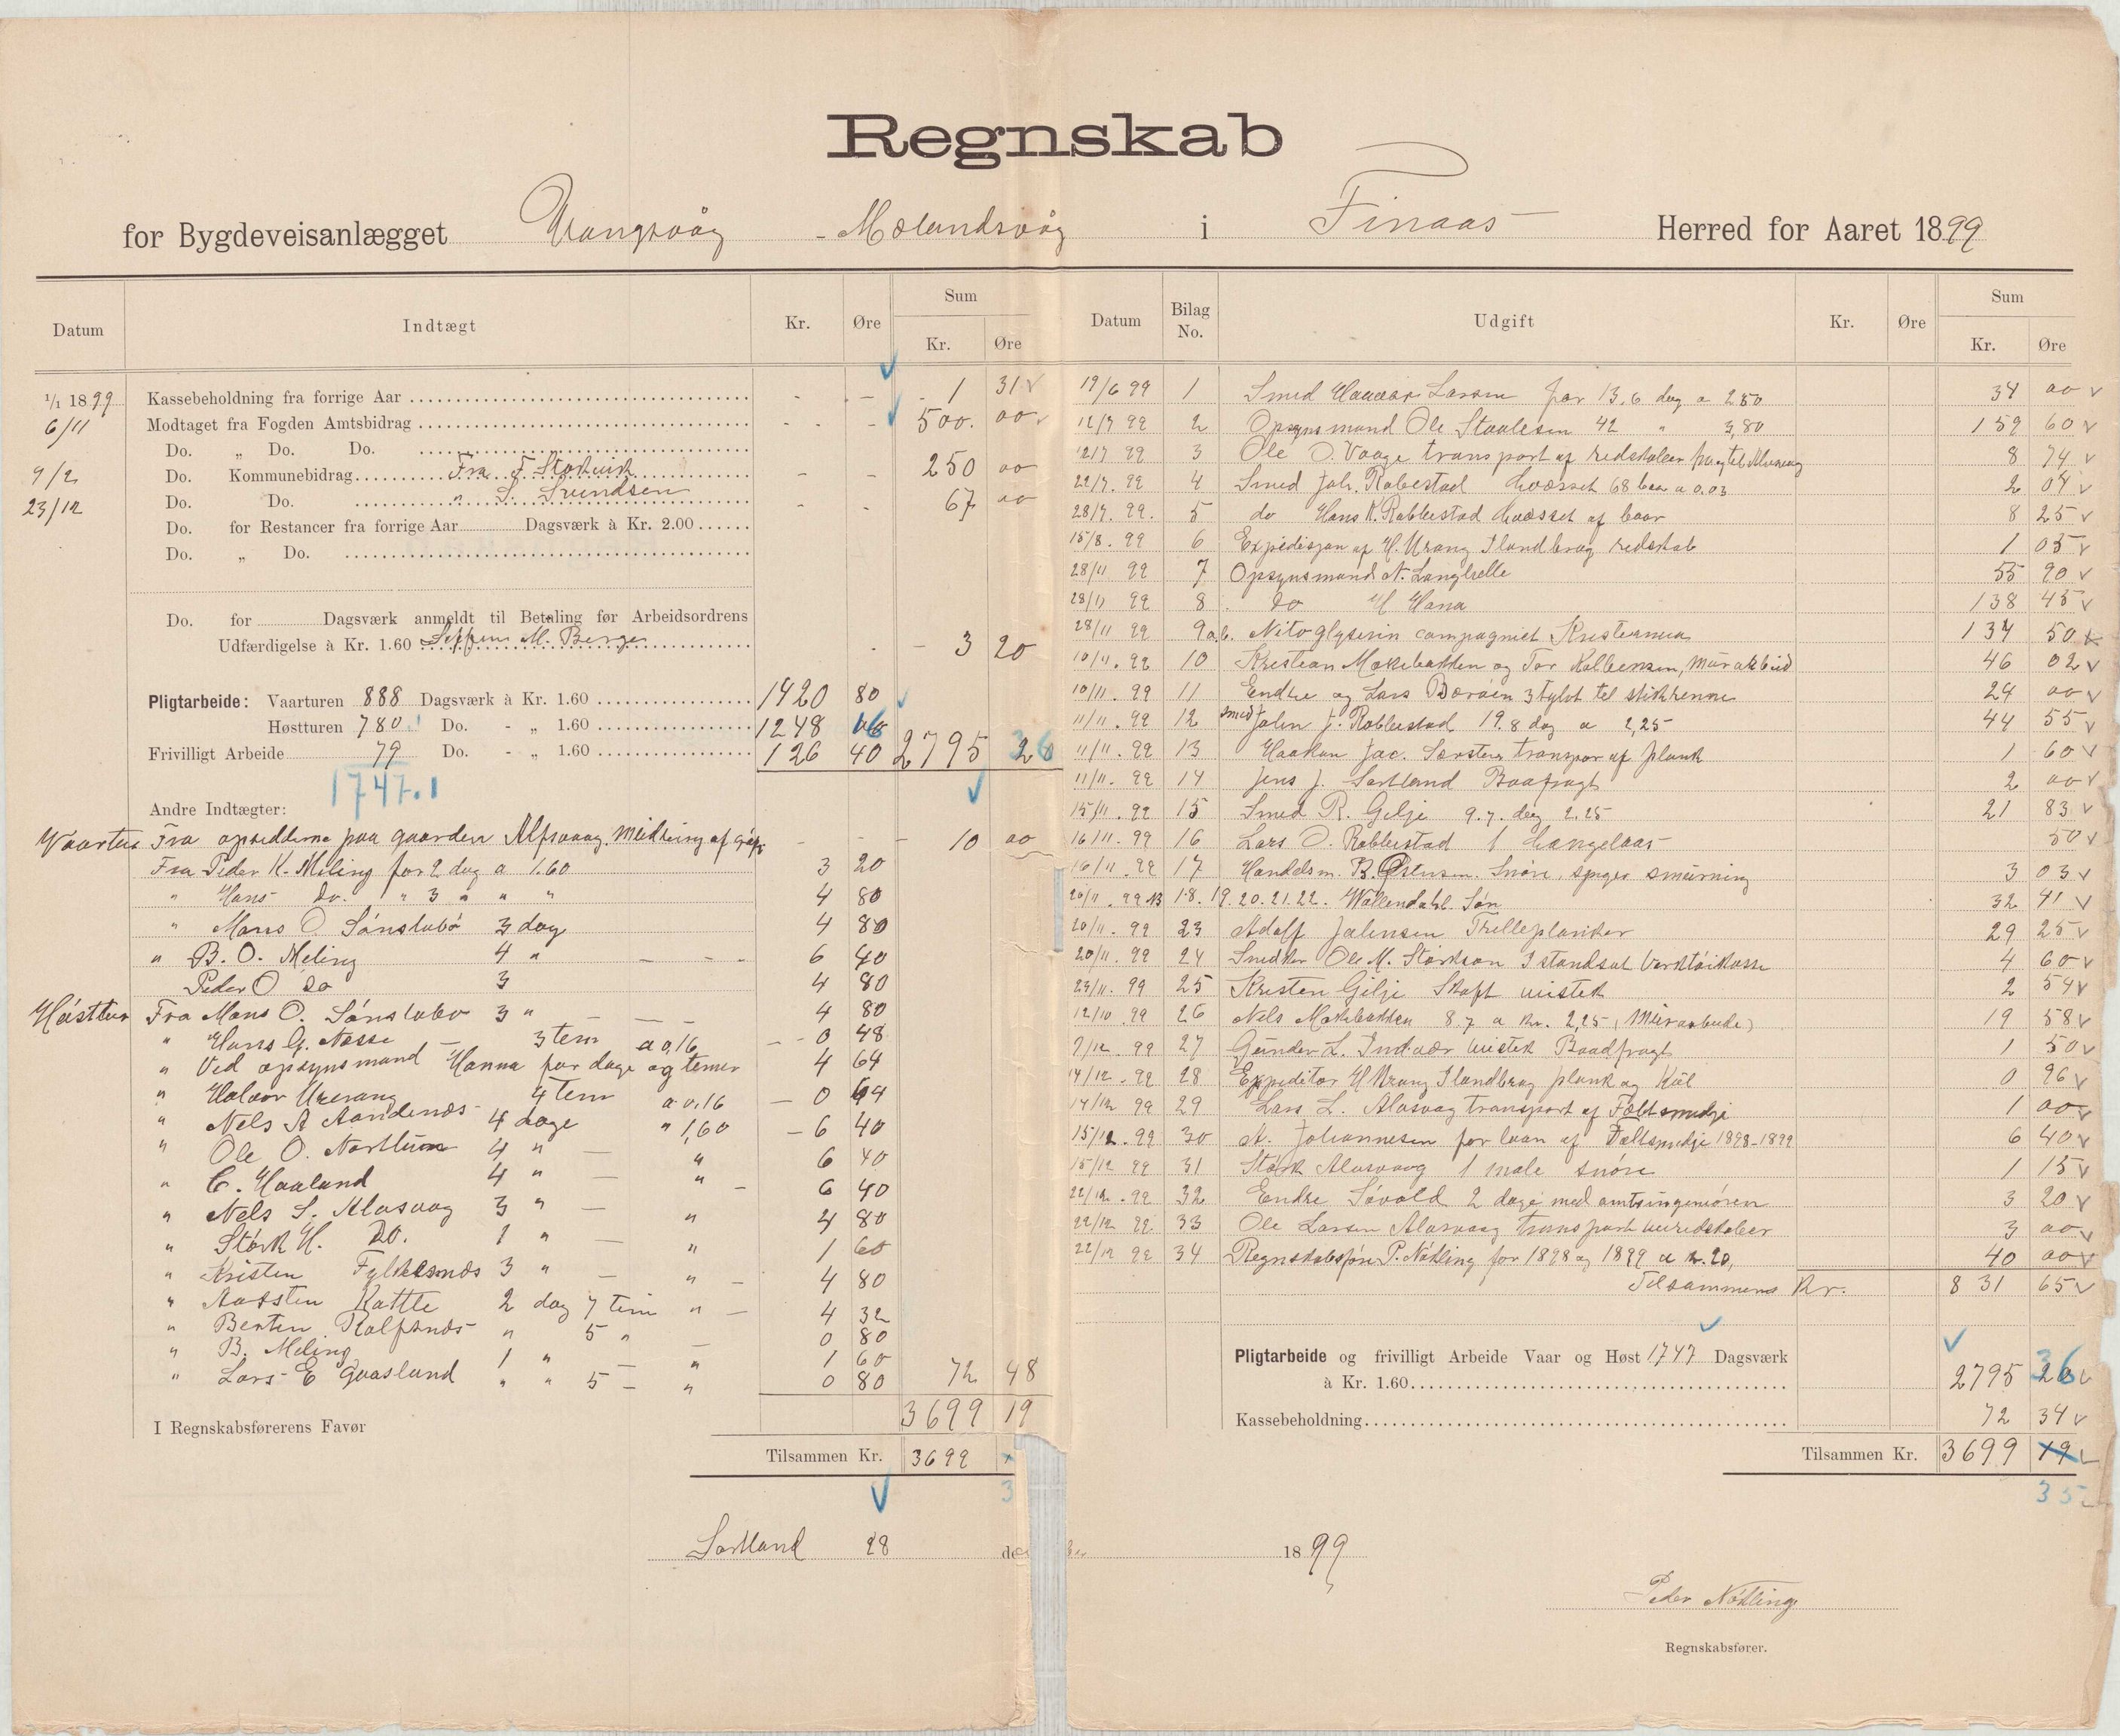 Regnskab
for Bygdeveisanlægget Urangsvåg - Mælandsvåg i Finaas Herred for Aaret 1899
Datum Indtægt Kr. Øre Sum Kr. Øre
1/1 1899 Kassebeholdning fra forrige Aar - - 1 31
6/11 Modtaget fra Fogden Amtsbidrag - - - 500. 00
Do. „ Do. Do.
9/2 Do. Kommunebidrag Fra F. Storvik - - 250 00
23/12 Do. Do. " S. Svendsen - - 67 00
Do. for Restancer fra forrige Aar Dagsværk à Kr. 2.00
Do. „ Do.
Do. for Dagsværk anmeldt til Betaling før Arbeidsordrens
Udfærdigelse à Kr. 1.60 M. Berge - - 3 20
Pligtarbeide: Vaarturen 888 Dagsværk à Kr. 1.60 1420 80
Høstturen 780.1 Do. - „ 1.60 1248 16
Frivilligt Arbeide 79 Do. - „ 1.60 126 40 2795 36
1747.1
Andre Indtægter:
Vaartur Fra opsidderne paa gaarden Alfsvaag. - - 10 00
Fra Peder K. Meling for 2 dag a 1.60 3 20
" Hans do. " 3 " " " 4 80
" Mons O. Sønstabø 3 dag 4 80
" B. O. Meling 4 " - - - 6 40
Peder O do 3 4 80
Høsttur Fra Mons O. Sønstabø 3 " - - 4 80
" Hans G. Nesse - 3 tem a 0,16 - - 0 48
" Ved opsynsmand Hanna for dage og temer 4 64
" Halvor Urerang 4 tem a 0,16 - 0 64
" Nels A Aandenæs 4 dage " 1,60 - 6 40
" Ole O. Nortun 4 " - " 6 40
" C. Haaland 4 " - " - 6 40
" Nels S. Alasvaag 3 " - " 4 80
" Størk H. Do. 1 " - " 1 60
" Kristen Fylkesnæs 3 " - " - 4 80
" Aassten Kattle 2 dag 7 tem " - 4 32
" Benten Rolfsnæs " 5 " 0 80
" B. Meling 1 " - " 1 60
" Lars E Gaasland " " 5 - " 0 80 72 48
3699 19
I Regnskabsførerens Favør
Tilsammen Kr. 3699
3
Sortland 28 de ber 1899
Datum Bilag No. Udgift Kr. Øre Sum Kr. Øre
19/6 99 1 Smed Larsen for 13.6 dag a 2.50 34 00
12/7 99 2 Opsynsmand Ole Staalesen 42 " 3,80 159 60
12/7 99 3 Ole O. Vaage transport af redskaber 8 74
22/7. 99 4 Smed Joh. Rabbestad hvæsset 68 bor a 0.03 2 04
28/7. 99. 5 do Hans K. Rabbestad hvæsset af boar 8 25
15/8. 99 6 Expedisjon af H. Urang Ilandbrag redskab 1 05
28/11 99 7 Opsynsmand N. Langhelle 55 90
28/11 99 8 do H Hana 138 45
28/11 99 9a.b. Nitoglyserin compagniet Kristiania 134 50
10/11. 99 10 Kristian og Tor 46 02
10/11. 99 11 Endre og Lars Børøen 3 tylvt til stikrenne 24 00
11/11. 99 12 smed John J. Rabbestad 19.8 dag a 2,25 44 55
11/11. 99 13 Haakon Jac. transpor af plank 1 60
11/11. 99 14 Jens J. Sortland Baafragt 2 00
15/11. 99 15 Smed R. Gilje 9.7. dag 2.25 21 83
16/11. 99 16 Lars O. Rabbestad 1 hængelaas 50
16/11. 99 17 Handelsm. B. Østensen. Snøre, spiger smøirning 3 03
20/11. 99 18. 19. 20. 21. 22. Wallendahl Søn 32 41
20/11. 99 23 Adolf Johnsen Trilleplanker 29 25
20/11. 99 24 Snedker Ole M. Størkson Istandsat Værktøikasse 4 60
24/11. 99 25 Kristen Gilje Skaft mistet 2 54
12/10. 99 26 Nels 8.7 a Kr. 2,25 (Mürarbeide) 19 58
2/12. 99 27 Gunder L. Indvær mistet Baadfragt 1 50
14/12. 99 28 Expeditør H Urang Ilandbrag plank og Kül 0 96
14/12 99 29 Lars L. Alasvag transport af Feltsmidje 1 00
15/12. 99 30 A. Johannesen for laan af Feltsmidje 1898-1899 6 40
15/12 99 31 Størk Alasvaag 1 male snøre 1 15
22/12. 99 32 Endre Søvold 2 dage med amtsingeniøren 3 20
22/12 99. 33 Ole Larsen Alasvaag transport veiredskaber 3 00
22/12 99 34 Regnskabsfører P. Nøkling for 1898 og 1899 a kr. 20, 40 00
Tilsammens Kr. 831 65
Pligtarbeide og frivilligt Arbeide Vaar og Høst 1747 Dagsværk
à Kr. 1.60 2795 36
Kassebeholdning 72 34
Tilsammen Kr. 3699 19
35
Peder Nøkling
Regnskabsfører.